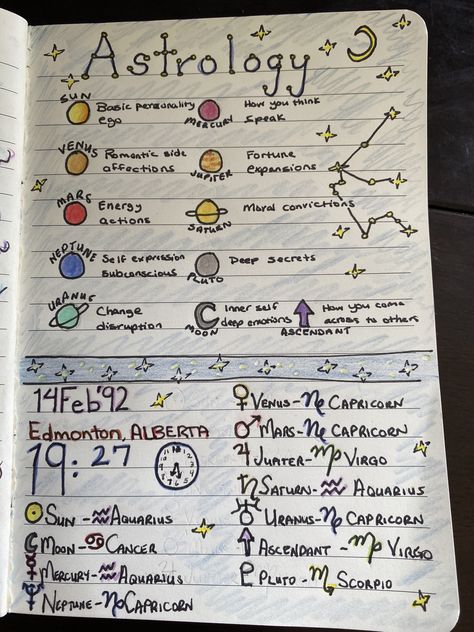 Astrology
SUN Basic personality ego
MERCURY How you think speak
VENUS Romantic side affections
JUPITER Fortune expansions
MARS Energy actions
SATURN Moral convictions
NEPTUNE Self expression subconscious
PLUTO Deep secrets
URANUS Change disruption
MOON Inner self deep emotions
ASCENDANT How you come across to others
14 Feb '92
Edmonton, ALBERTA
19:27
☉ SUN - ♒ AQUARIUS
☾ MOON - ♋ CANCER
☿ MERCURY - ♒ AQUARIUS
♆ NEPTUNE - ♑ CAPRICORN
♀ VENUS - ♑ CAPRICORN
♂ MARS - ♑ CAPRICORN
♃ JUATER - ♍ VIRGO
♄ SATURN - ♒ AQUARIUS
♅ URANUS - ♑ CAPRICORN
↑ ASCENDANT - ♍ VIRGO
♇ PLUTO - ♏ SCORPIO